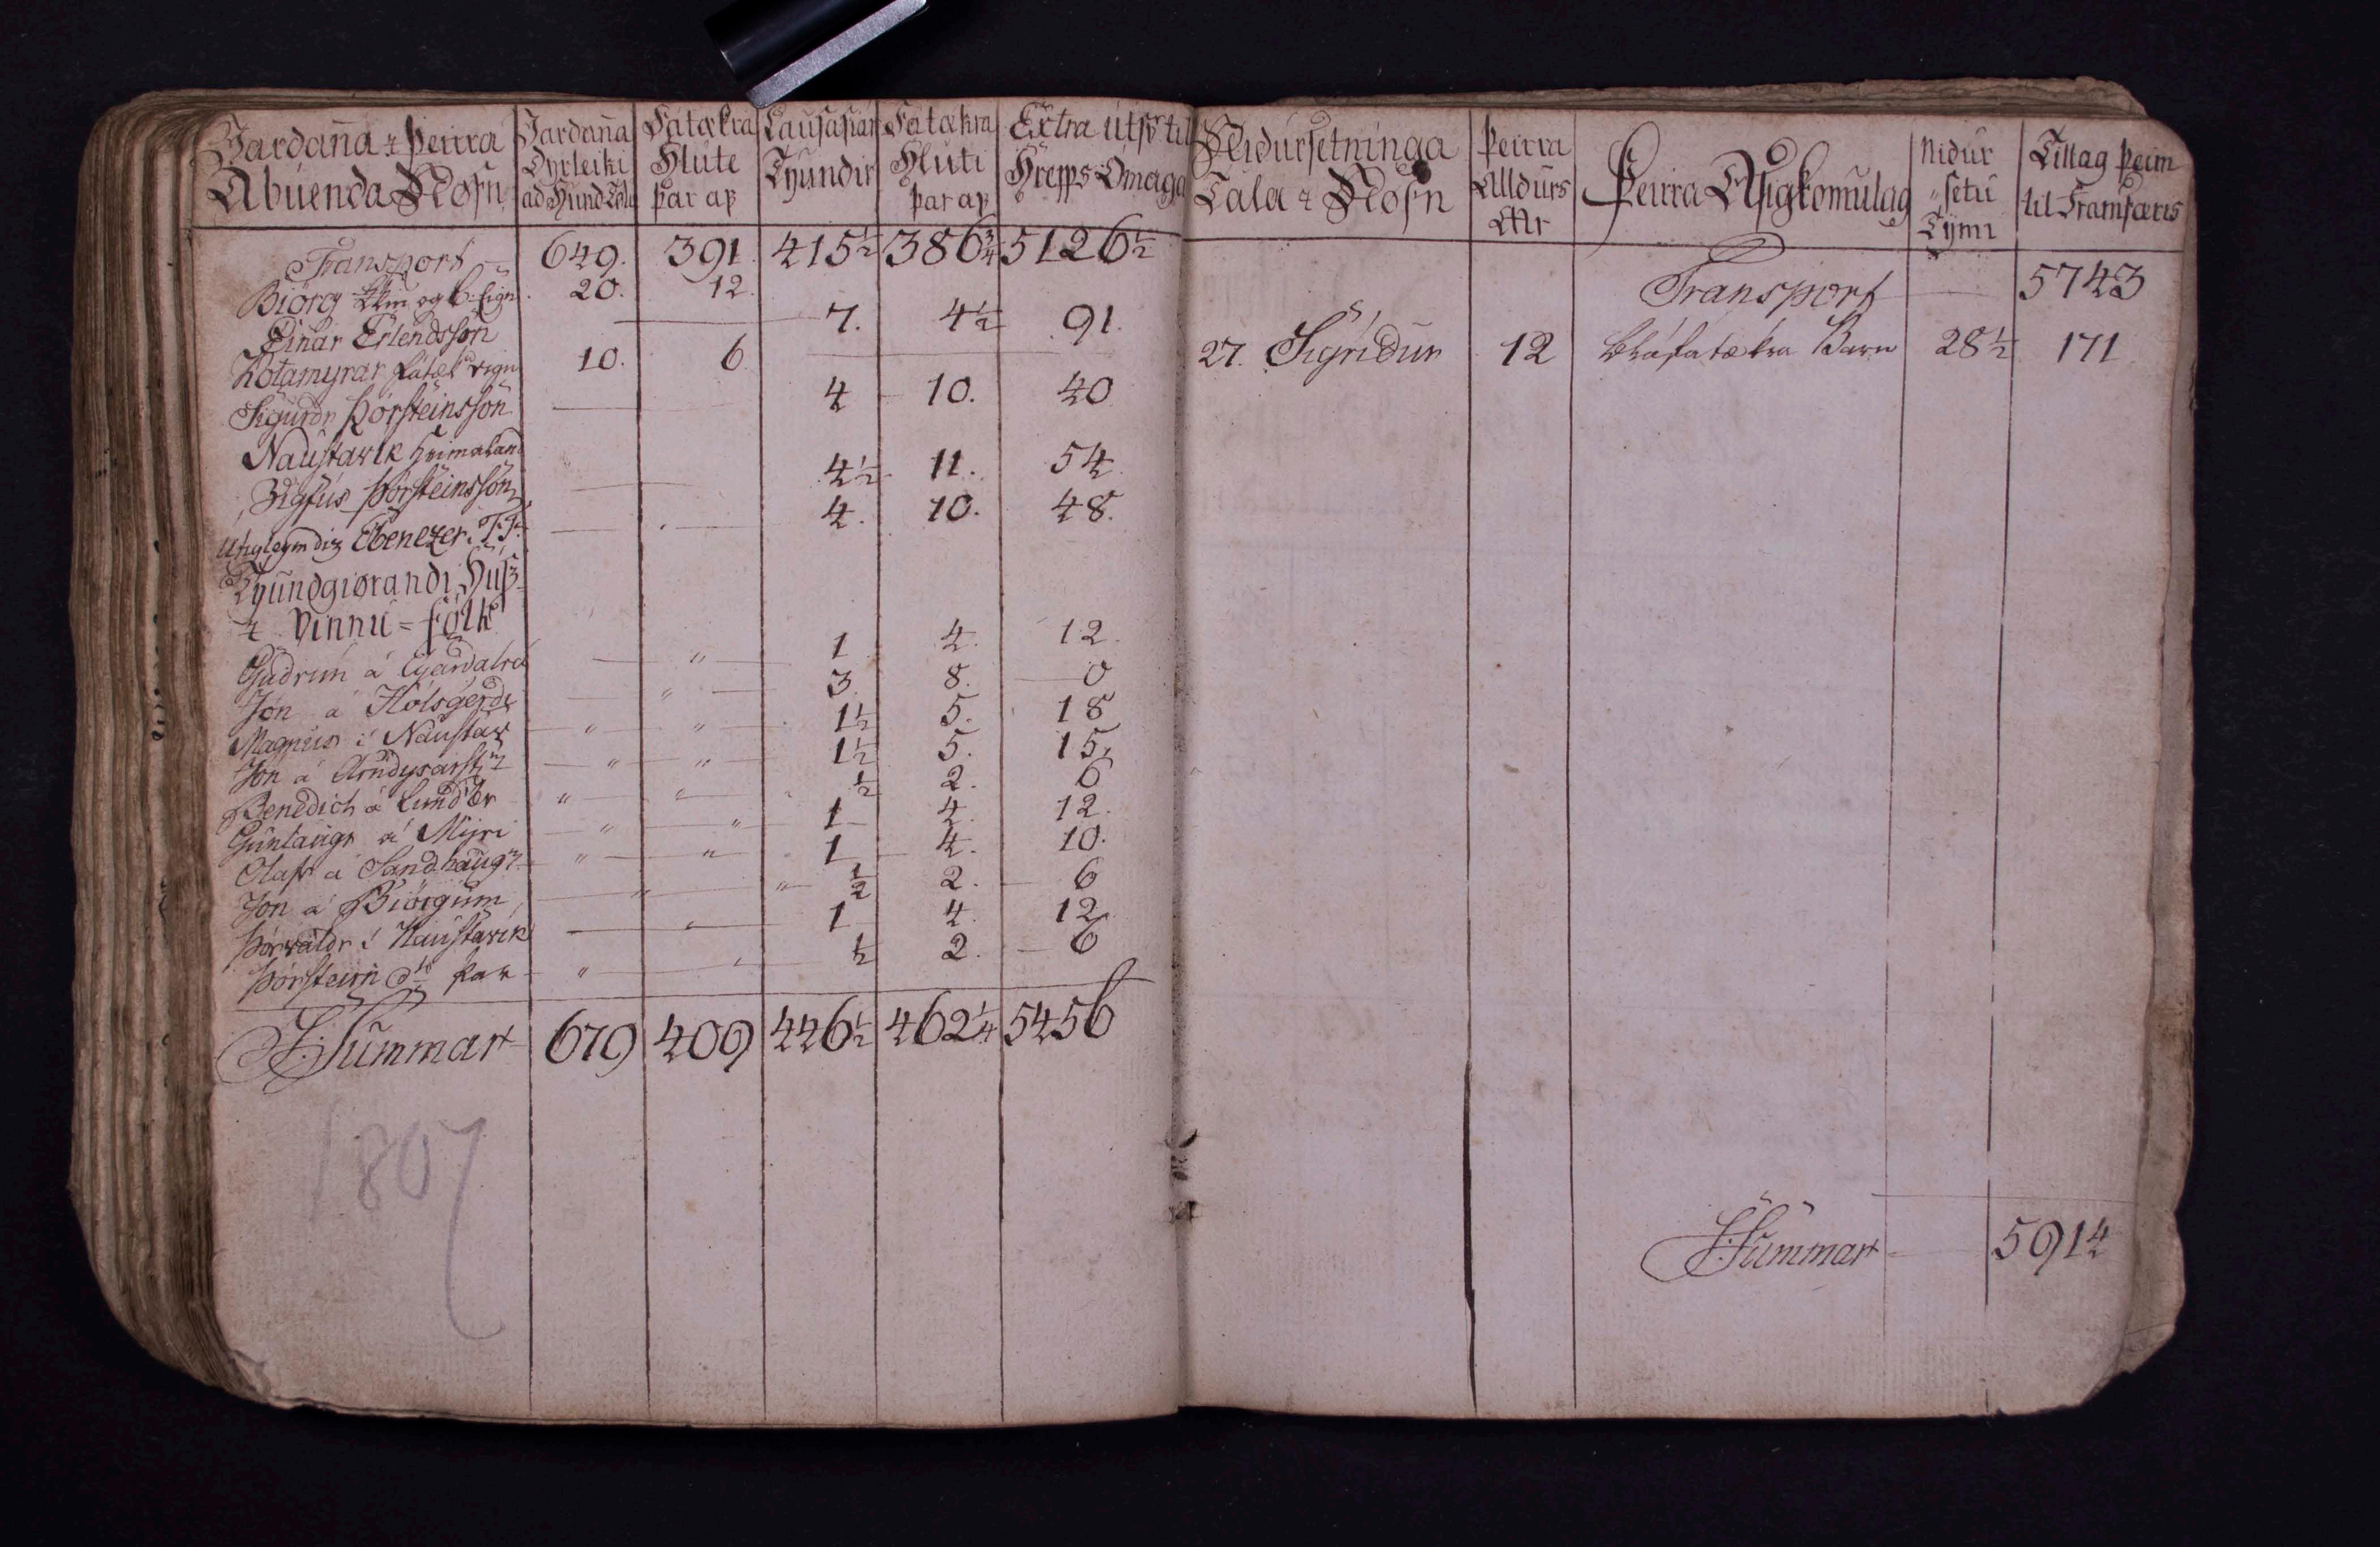 Jardaña & Þeirra Ábúenda Nöfn | Jardaña Dyrleiki ad Hund Tölu | Fátækra Hlute þar af | Lausafiár Tyundir | Fátækra Hluti þar af | Extra útsvr til Hrepps Omaga
Transport — 649. 391. 415½ 386¾ 5126½
Biörg 20. 12.
Einar Erlendsson — 7. 4½ 91.
Kotamyrar fatæk eign 10. 6.
Sigurdr Þorsteinsson — 4 10. 40
Naustavik heimaland
Sigfús Þorsteinsson — 4½ 11. 54.
Ebenezer — 4. 10. 48.
Tyundgiörandi Hús
& Vinnu=fólk
Gudrún á — " — 1 4. 12.
Jón á Hólsgerde — " — 3. 8. — 0
Magnús i Naustav — " — " — 1½ 5. 18
Jón á Arndysarst — " — " — 1½ 5. 15.
Benedict á Lund " — " — ½ 2. 6
Gunlaugr á Myri — " — " 1 — 4. 12.
Olafr á Sandhaug — " — " — 1 — 4. 10.
Jón á Biörgum — " — " — ½ 2. — 6
Þorvaldr í Naustavik — " — 1 4. 12.
Þorsteirn " — " — ½ 2. — 6
Summar 679 409 446½ 462¼ 5456
1807
Nidursetninga Tala & Nöfn | Þeirra Alldurs Ár | Þeirra Asigkomulag | Nidur setu Tymi | Tillag þeim til Framfæris
Transport — 5743
27. Sigrídur 12 bláfatækra Barn 28½ 171
Summar — 5914